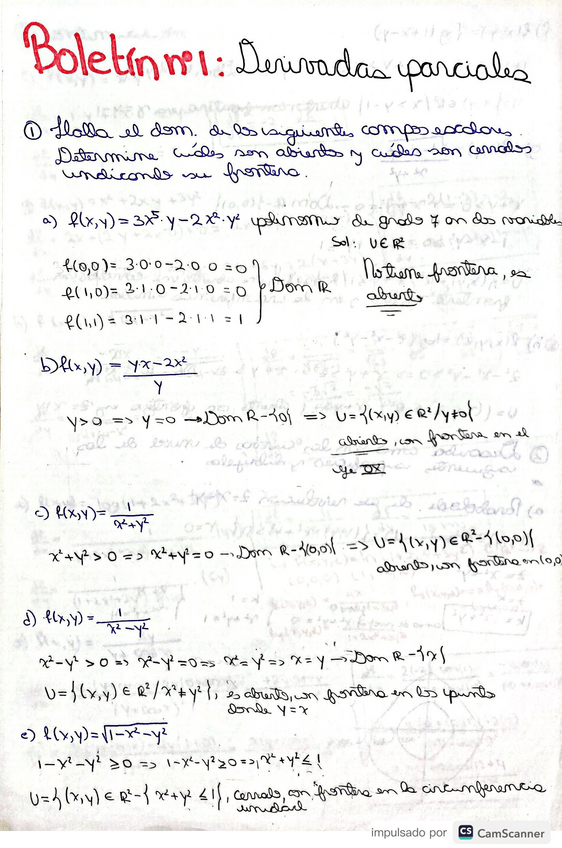 Boletín nº1: Derivadas parciales
① Halla el dom. de los siguientes campos escalares.
Determine cuáles son abiertos y cuáles son cerrados
indicando su frontera.
a) f(x,y) = 3x⁵·y - 2x²·y² polinomio de grado 7 con dos variables
Sol: U∈ℝ²
f(0,0) = 3·0·0 - 2·0·0 = 0
f(1,0) = 3·1·0 - 2·1·0 = 0
f(1,1) = 3·1·1 - 2·1·1 = 1
Dom ℝ
No tiene frontera, es
abierto
b) f(x,y) = (yx - 2x²)/y
y>0 => y=0 → Dom ℝ-{0} => U={(x,y) ∈ ℝ²/y≠0}
abierto, con frontera en el
eje OX
c) f(x,y) = 1/(x²+y²)
x²+y²>0 => x²+y²=0 → Dom ℝ-{(0,0)} => U={(x,y) ∈ ℝ²-{(0,0)}
abierto, con frontera en (0,0)
d) f(x,y) = 1/(x²-y²)
x²-y²>0 => x²-y²=0 => x²=y² => x=y → Dom ℝ-{x}
U={(x,y) ∈ ℝ²/x²≠y²}, es abierto, con frontera en los puntos
donde y=x
e) f(x,y) = √(1-x²-y²)
1-x²-y² ≥0 => 1-x²-y²≥0 => x²+y²≤1
U={(x,y) ∈ ℝ²-{x²+y²≤1}, cerrado, con frontera en la circunferencia
unidad
impulsado por CS CamScanner